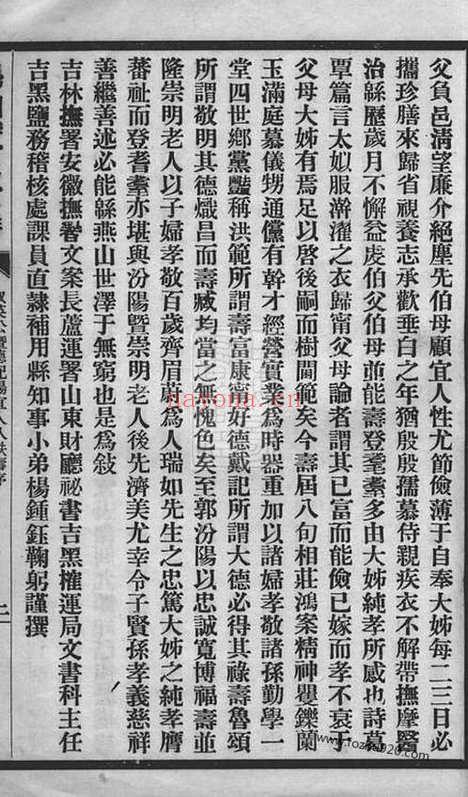 父負邑清望廉介絕塵先伯母顧宜人性尤節儉薄于自奉大姊每二三日必
攜珍膳來歸省視養志承歡垂白之年猶殷殷孺慕侍親疾衣不解帶撫摩醫
治緜歷歲月不懈益虔伯父母前能壽登耄耋多由大姊純孝所感也詩葛
覃篇言太姒服澣濯之衣歸甯父母論者謂其已富而能儉已嫁而孝不衰于
父母大姊有焉足以啓後嗣而樹閫範矣今壽屆八旬相莊鴻案精神矍鑠蘭
玉滿庭慕儀甥通儻有幹才經營實業爲時器重加以諸婦孝勤學一
堂四世鄉黨豔稱洪範所謂壽富康寧好德戴記所謂大德必得其祿壽魯頌
所謂敬明其德熾昌而壽臧均當之無愧色矣至郭汾陽以忠誠寬博福壽並
隆崇明老人以子婦孝敬百歲齊眉蔚爲人瑞如先生之忠篤大姊之純孝膺
蕃祉而登耆耋亦堪與汾陽暨崇明老人後先濟美尤幸令子賢孫孝義慈祥
善繼善述必能緜燕山世澤于無窮也是爲敍
吉林撫署安徽撫署文案長蘆運署山東財廳祕書吉黑榷運局文書科主任
吉黑鹽務稽核處課員直隸補用縣知事小弟楊鍾鈺鞠躬謹撰
二
haoyona.com
www.fozhu920.com